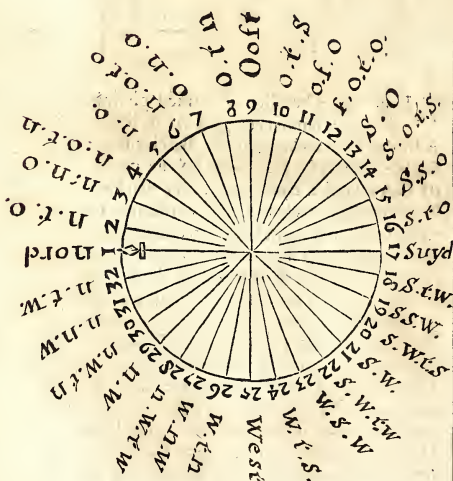 1 nord
2 n.t.o.
3 n.n.o
4 n.o.t.n
5 n.o.
6 n.o.t.o
7 o.n.o
8 o.t.n
9 Ooſt
10 o.t.s
11 o.ſ.o
12 ſ.o.t.o.
13 S.O
14 s.o.t.s.
15 S.s.o
16 s.t.o
17 Suyd
18 S.t.w.
19 S.S.W.
20 S.W.t.S
21 S.W.
22 S.W.t.w
23 W.S.W
24 W.t.S.
25 West
26 W.t.n
27 W.n.W
28 n.W.t.W
29 n.W
30 n.W.t.n
31 n.n.W
32 n.t.W.